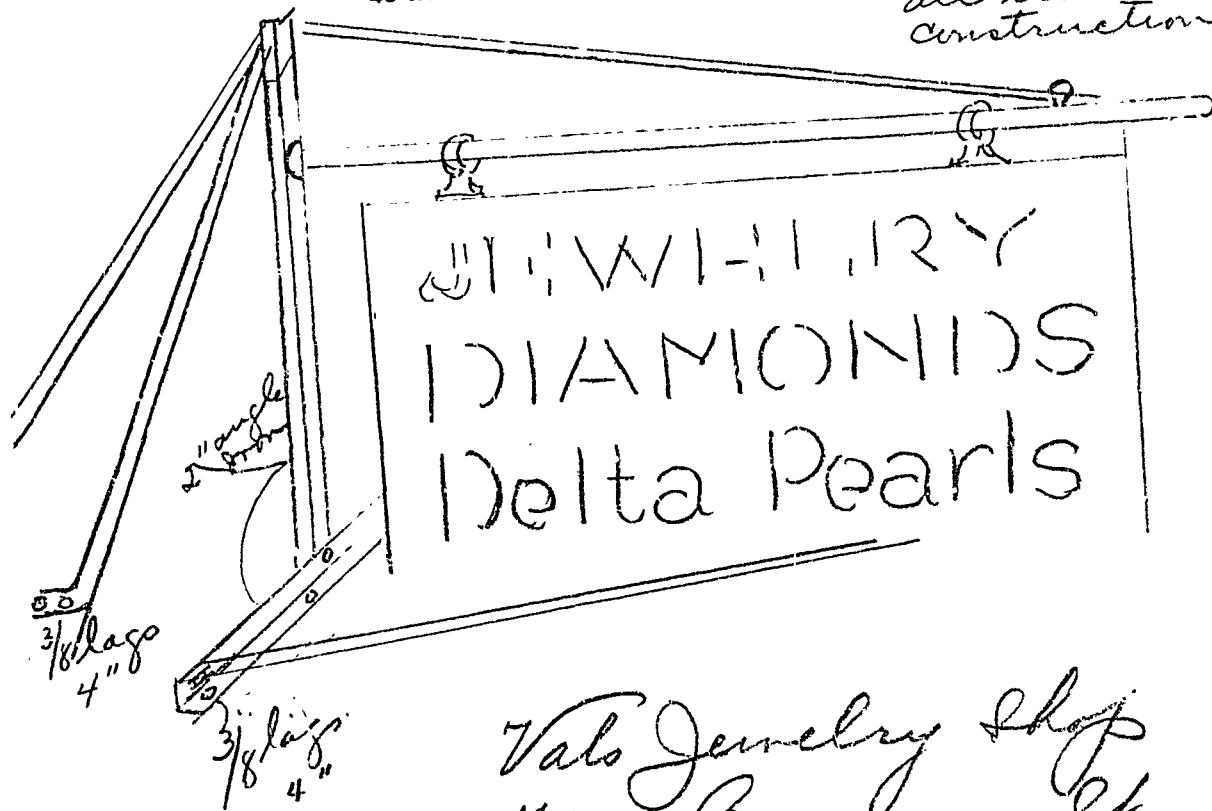 construction
JEWELRY
DIAMONDS
Delta Pearls
2" angle
iron
3/8" lags
4"
3/8 lags
4"
Vals Jewelry Shop